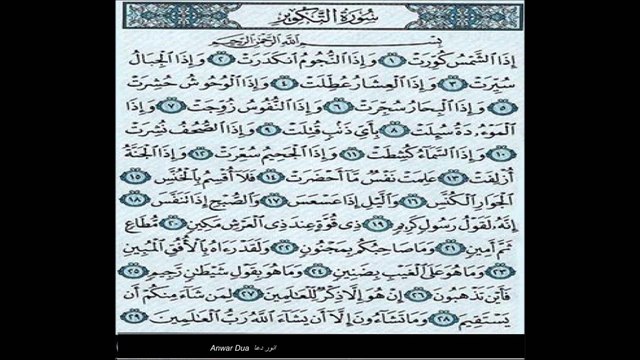 سُورَةُ التَّكْوِيرِ
بِسْمِ اللَّهِ الرَّحْمَٰنِ الرَّحِيمِ
إِذَا الشَّمْسُ كُوِّرَتْ ١ وَإِذَا النُّجُومُ انكَدَرَتْ ٢ وَإِذَا الْجِبَالُ
سُيِّرَتْ ٣ وَإِذَا الْعِشَارُ عُطِّلَتْ ٤ وَإِذَا الْوُحُوشُ حُشِرَتْ
٥ وَإِذَا الْبِحَارُ سُجِّرَتْ ٦ وَإِذَا النُّفُوسُ زُوِّجَتْ ٧ وَإِذَا
الْمَوْءُودَةُ سُئِلَتْ ٨ بِأَيِّ ذَنبٍ قُتِلَتْ ٩ وَإِذَا الصُّحُفُ نُشِرَتْ
١٠ وَإِذَا السَّمَاءُ كُشِطَتْ ١١ وَإِذَا الْجَحِيمُ سُعِّرَتْ ١٢ وَإِذَا الْجَنَّةُ
أُزْلِفَتْ ١٣ عَلِمَتْ نَفْسٌ مَّا أَحْضَرَتْ ١٤ فَلَا أُقْسِمُ بِالْخُنَّسِ ١٥
الْجَوَارِ الْكُنَّسِ ١٦ وَاللَّيْلِ إِذَا عَسْعَسَ ١٧ وَالصُّبْحِ إِذَا تَنَفَّسَ ١٨
إِنَّهُ لَقَوْلُ رَسُولٍ كَرِيمٍ ١٩ ذِي قُوَّةٍ عِندَ ذِي الْعَرْشِ مَكِينٍ ٢٠ مُّطَاعٍ
ثَمَّ أَمِينٍ ٢١ وَمَا صَاحِبُكُم بِمَجْنُونٍ ٢٢ وَلَقَدْ رَءَاهُ بِالْأُفُقِ الْمُبِينِ
٢٣ وَمَا هُوَ عَلَى الْغَيْبِ بِضَنِينٍ ٢٤ وَمَا هُوَ بِقَوْلِ شَيْطَٰنٍ رَّجِيمٍ ٢٥
فَأَيْنَ تَذْهَبُونَ ٢٦ إِنْ هُوَ إِلَّا ذِكْرٌ لِّلْعَٰلَمِينَ ٢٧ لِمَن شَاءَ مِنكُمْ أَن
يَسْتَقِيمَ ٢٨ وَمَا تَشَاءُونَ إِلَّا أَن يَشَاءَ اللَّهُ رَبُّ الْعَٰلَمِينَ ٢٩
Anwar Dua انور دعا